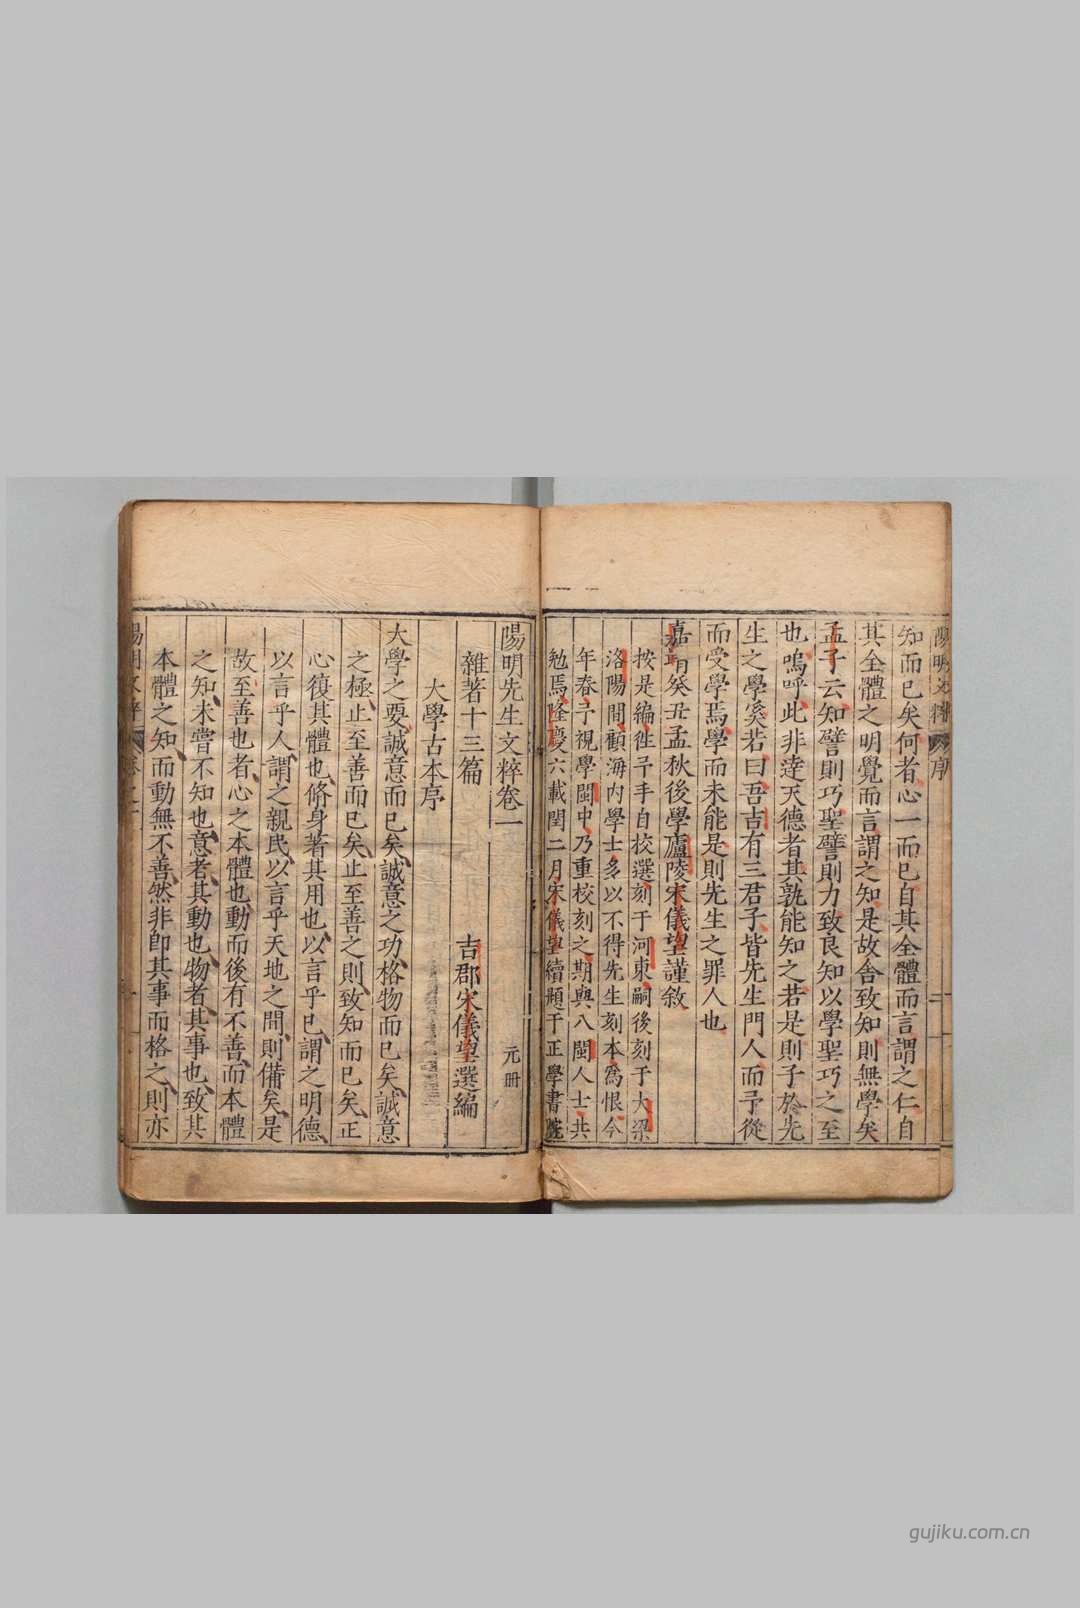 陽明文粹 序
知而已矣何者心一而已自其全體而言謂之仁自
其全體之明覺而言謂之知是故舍致知則無學矣
孟子云知譬則巧聖譬則力致良知以學聖巧之至
也嗚呼此非達天德者其孰能知之若是則予於先
生之學奚若曰吾吉有三君子皆先生門人而予從
而受學焉學而未能是則先生之罪人也
嘉靖癸丑孟秋後學廬陵宋儀望謹敘
按是編徃予手自校選刻于河東嗣後刻于大梁
洛陽間顧海內學士多以不得先生刻本爲恨今
年春予視學閩中乃重校刻之期與八閩人士共
勉焉隆慶六載閏二月宋儀望續題于正學書院
陽明先生文粹卷一
雜著十三篇
吉郡宋儀望選編
元冊
大學古本序
大學之要誠意而已矣誠意之功格物而已矣誠意
之極止至善而已矣止至善之則致知而已矣正
心復其體也脩身著其用也以言乎已謂之明德
以言乎人謂之親民以言乎天地之間則備矣是
故至善也者心之本體也動而後有不善而本體
之知未嘗不知也意者其動也物者其事也致其
本體之知而動無不善然非卽其事而格之則亦
陽明文粹